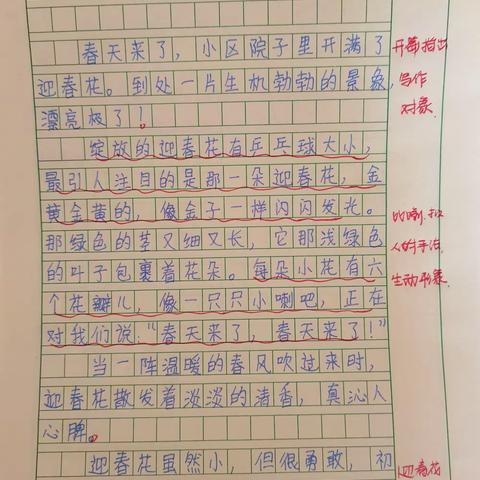 春天来了，小区院子里开满了
迎春花。到处一片生机勃勃的景象，
漂亮极了！
绽放的迎春花有乒乓球大小，
最引人注目的是那一朵迎春花，金
黄金黄的，像金子一样闪闪发光。
那绿色的茎又细又长，它那浅绿色
的叶子包裹着花朵。每朵小花有六
个花瓣儿，像一只只小喇吧，正在
对我们说：“春天来了，春天来了！”
当一阵温暖的春风吹过来时，
迎春花散发着淡淡的清香，真沁人
心脾。
迎春花虽然小，但很勇敢，初
开篇指出
写作
对象
比喻、拟
人的手法
生动形象
迎春花